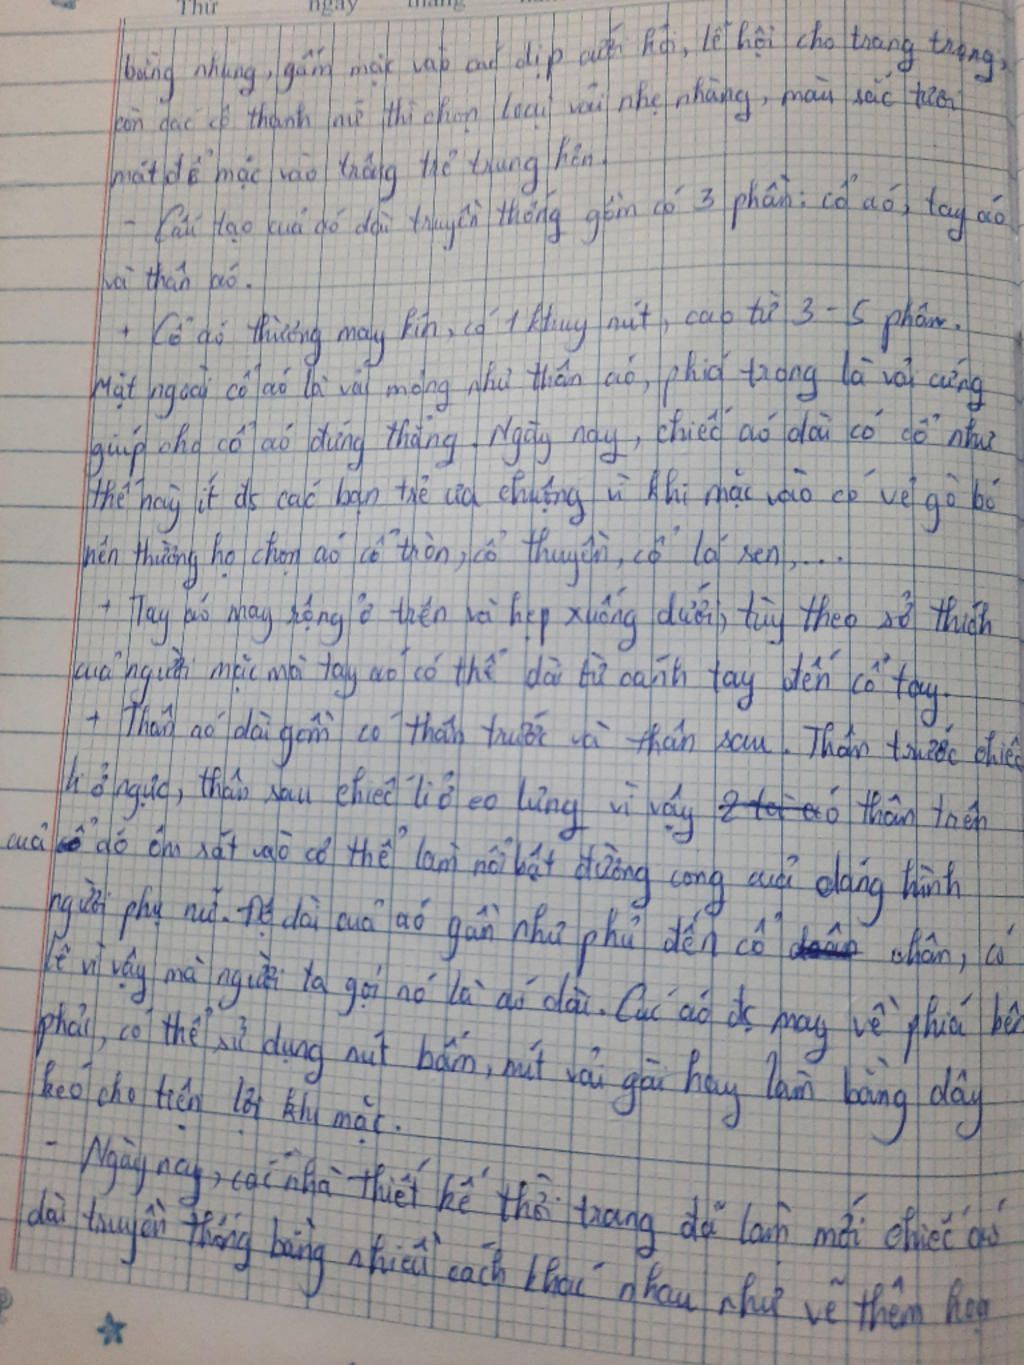 Thứ ngày tháng
bằng nhung, gấm mặc vào các dịp cưới hỏi, lễ hội cho trang trọng,
còn các cô thanh nữ thì chọn loại vải nhẹ nhàng, màu sắc tươi
mát để mặc vào trông trẻ trung hơn.
- Cấu tạo của áo dài truyền thống gồm có 3 phần: cổ áo, tay áo
và thân áo.
+ Cổ áo thường may kín, có 1 khuy nút, cao từ 3-5 phân.
Mặt ngoài cổ áo là vải mỏng như thân áo, phía trong là vải cứng
giúp cho cổ áo đứng thẳng. Ngày nay, chiếc áo dài có cổ như
thế này ít đc các bạn trẻ ưa chuộng vì khi mặc vào có vẻ gò bó
nên thường họ chọn áo cổ tròn, cổ thuyền, cổ lá sen,....
+ Tay áo may rộng ở trên và hẹp xuống dưới, tùy theo sở thích
của người mặc mà tay áo có thể dài từ cánh tay đến cổ tay.
+ Thân áo dài gồm có thân trước và thân sau. Thân trước chiết
li ở ngực, thân sau chiết li ở eo lưng vì vậy thân trên
của áo ôm sát vào cơ thể làm nổi bật đường cong của dáng hình
người phụ nữ. Độ dài của áo gần như phủ đến cổ chân, có
lẽ vì vậy mà người ta gọi nó là áo dài. Cúc áo đc may về phía bên
phải, có thể sử dụng nút bấm, nút vải gài hay làm bằng dây
kéo cho tiện lợi khi mặc.
- Ngày nay, các nhà thiết kế thời trang đã làm mới chiếc áo
dài truyền thống bằng nhiều cách khác nhau như vẽ thêm hoa